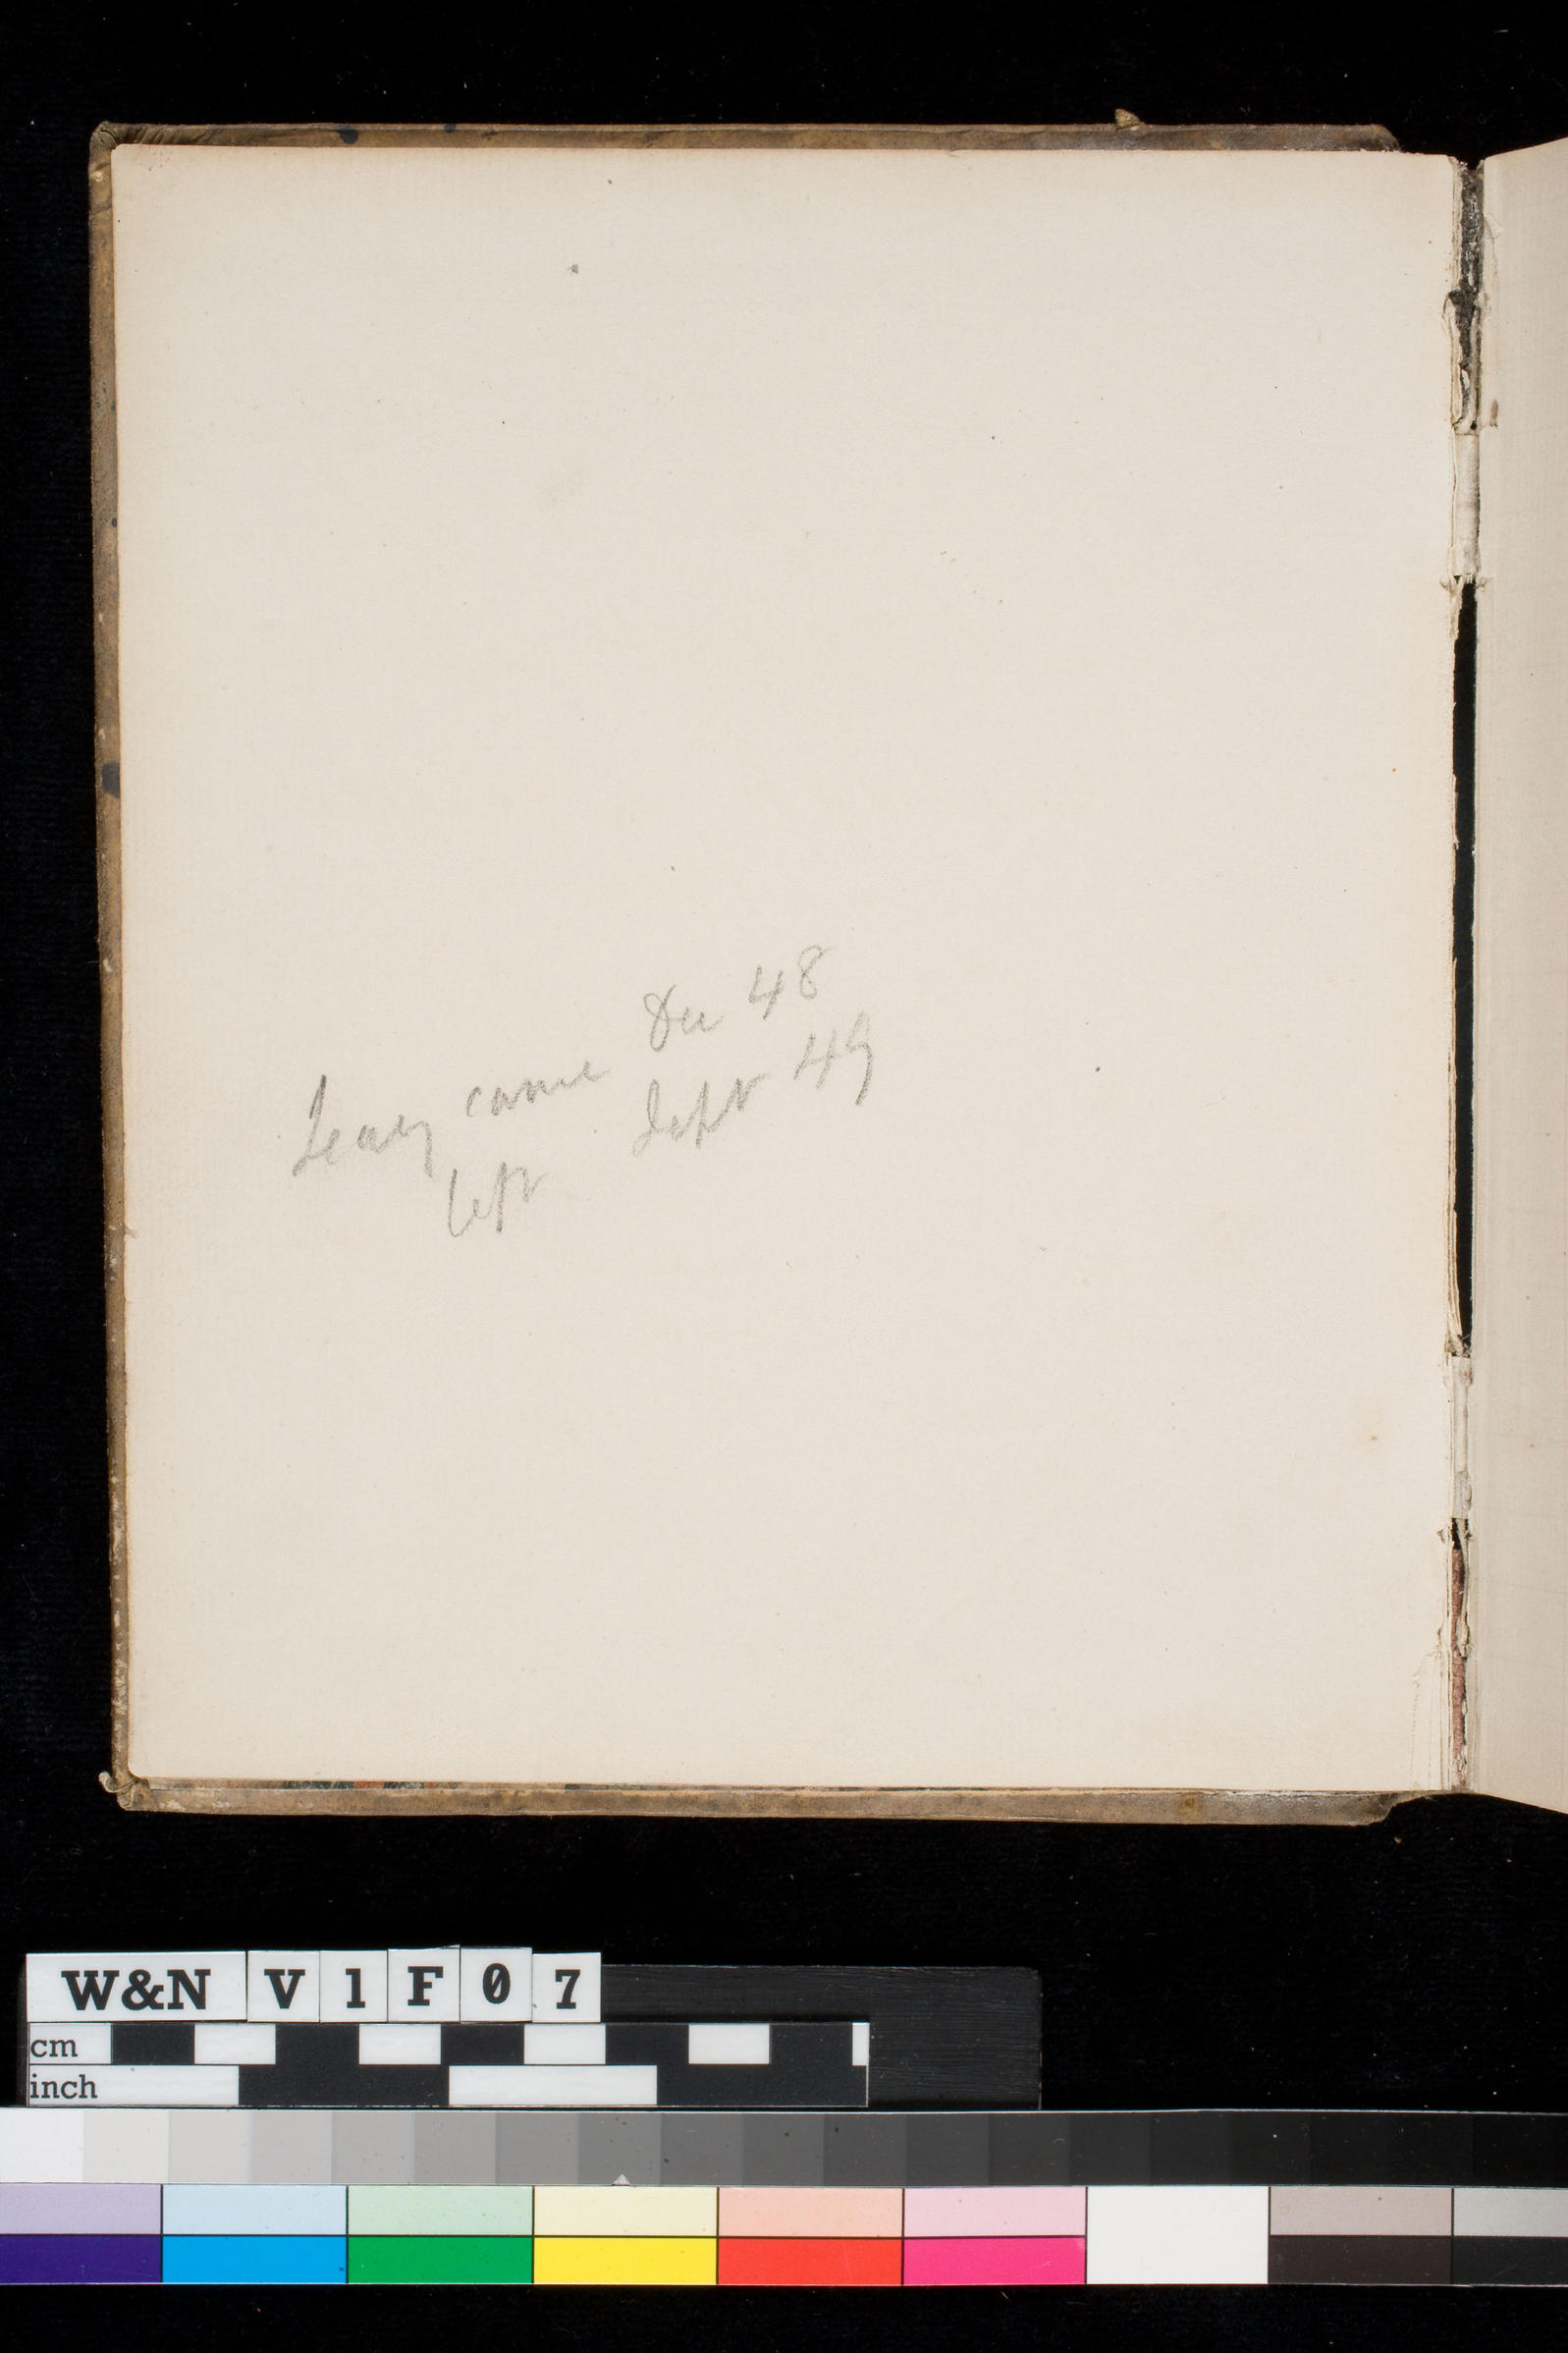 Leavy came Dec 48
left Sept 49
W&N V 1 F 0 7
cm
inch